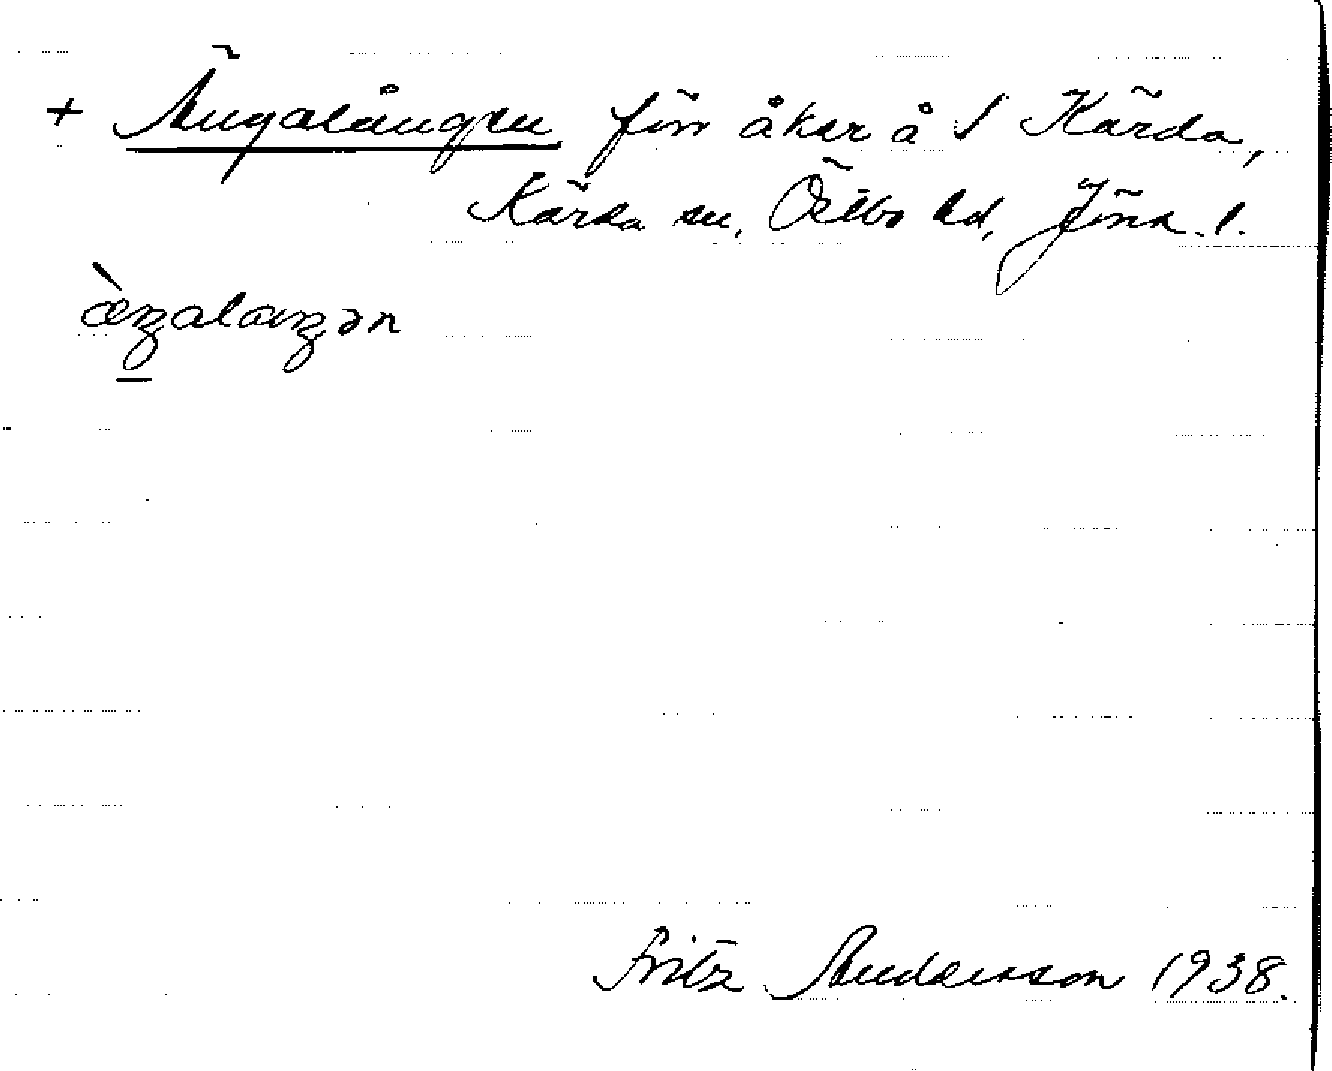 + Ängalången förr åker å S Kärda,
Kärda sn, Östbo hd, Jönk. l.
àŋalaŋən
Fritz Andersson 1938.